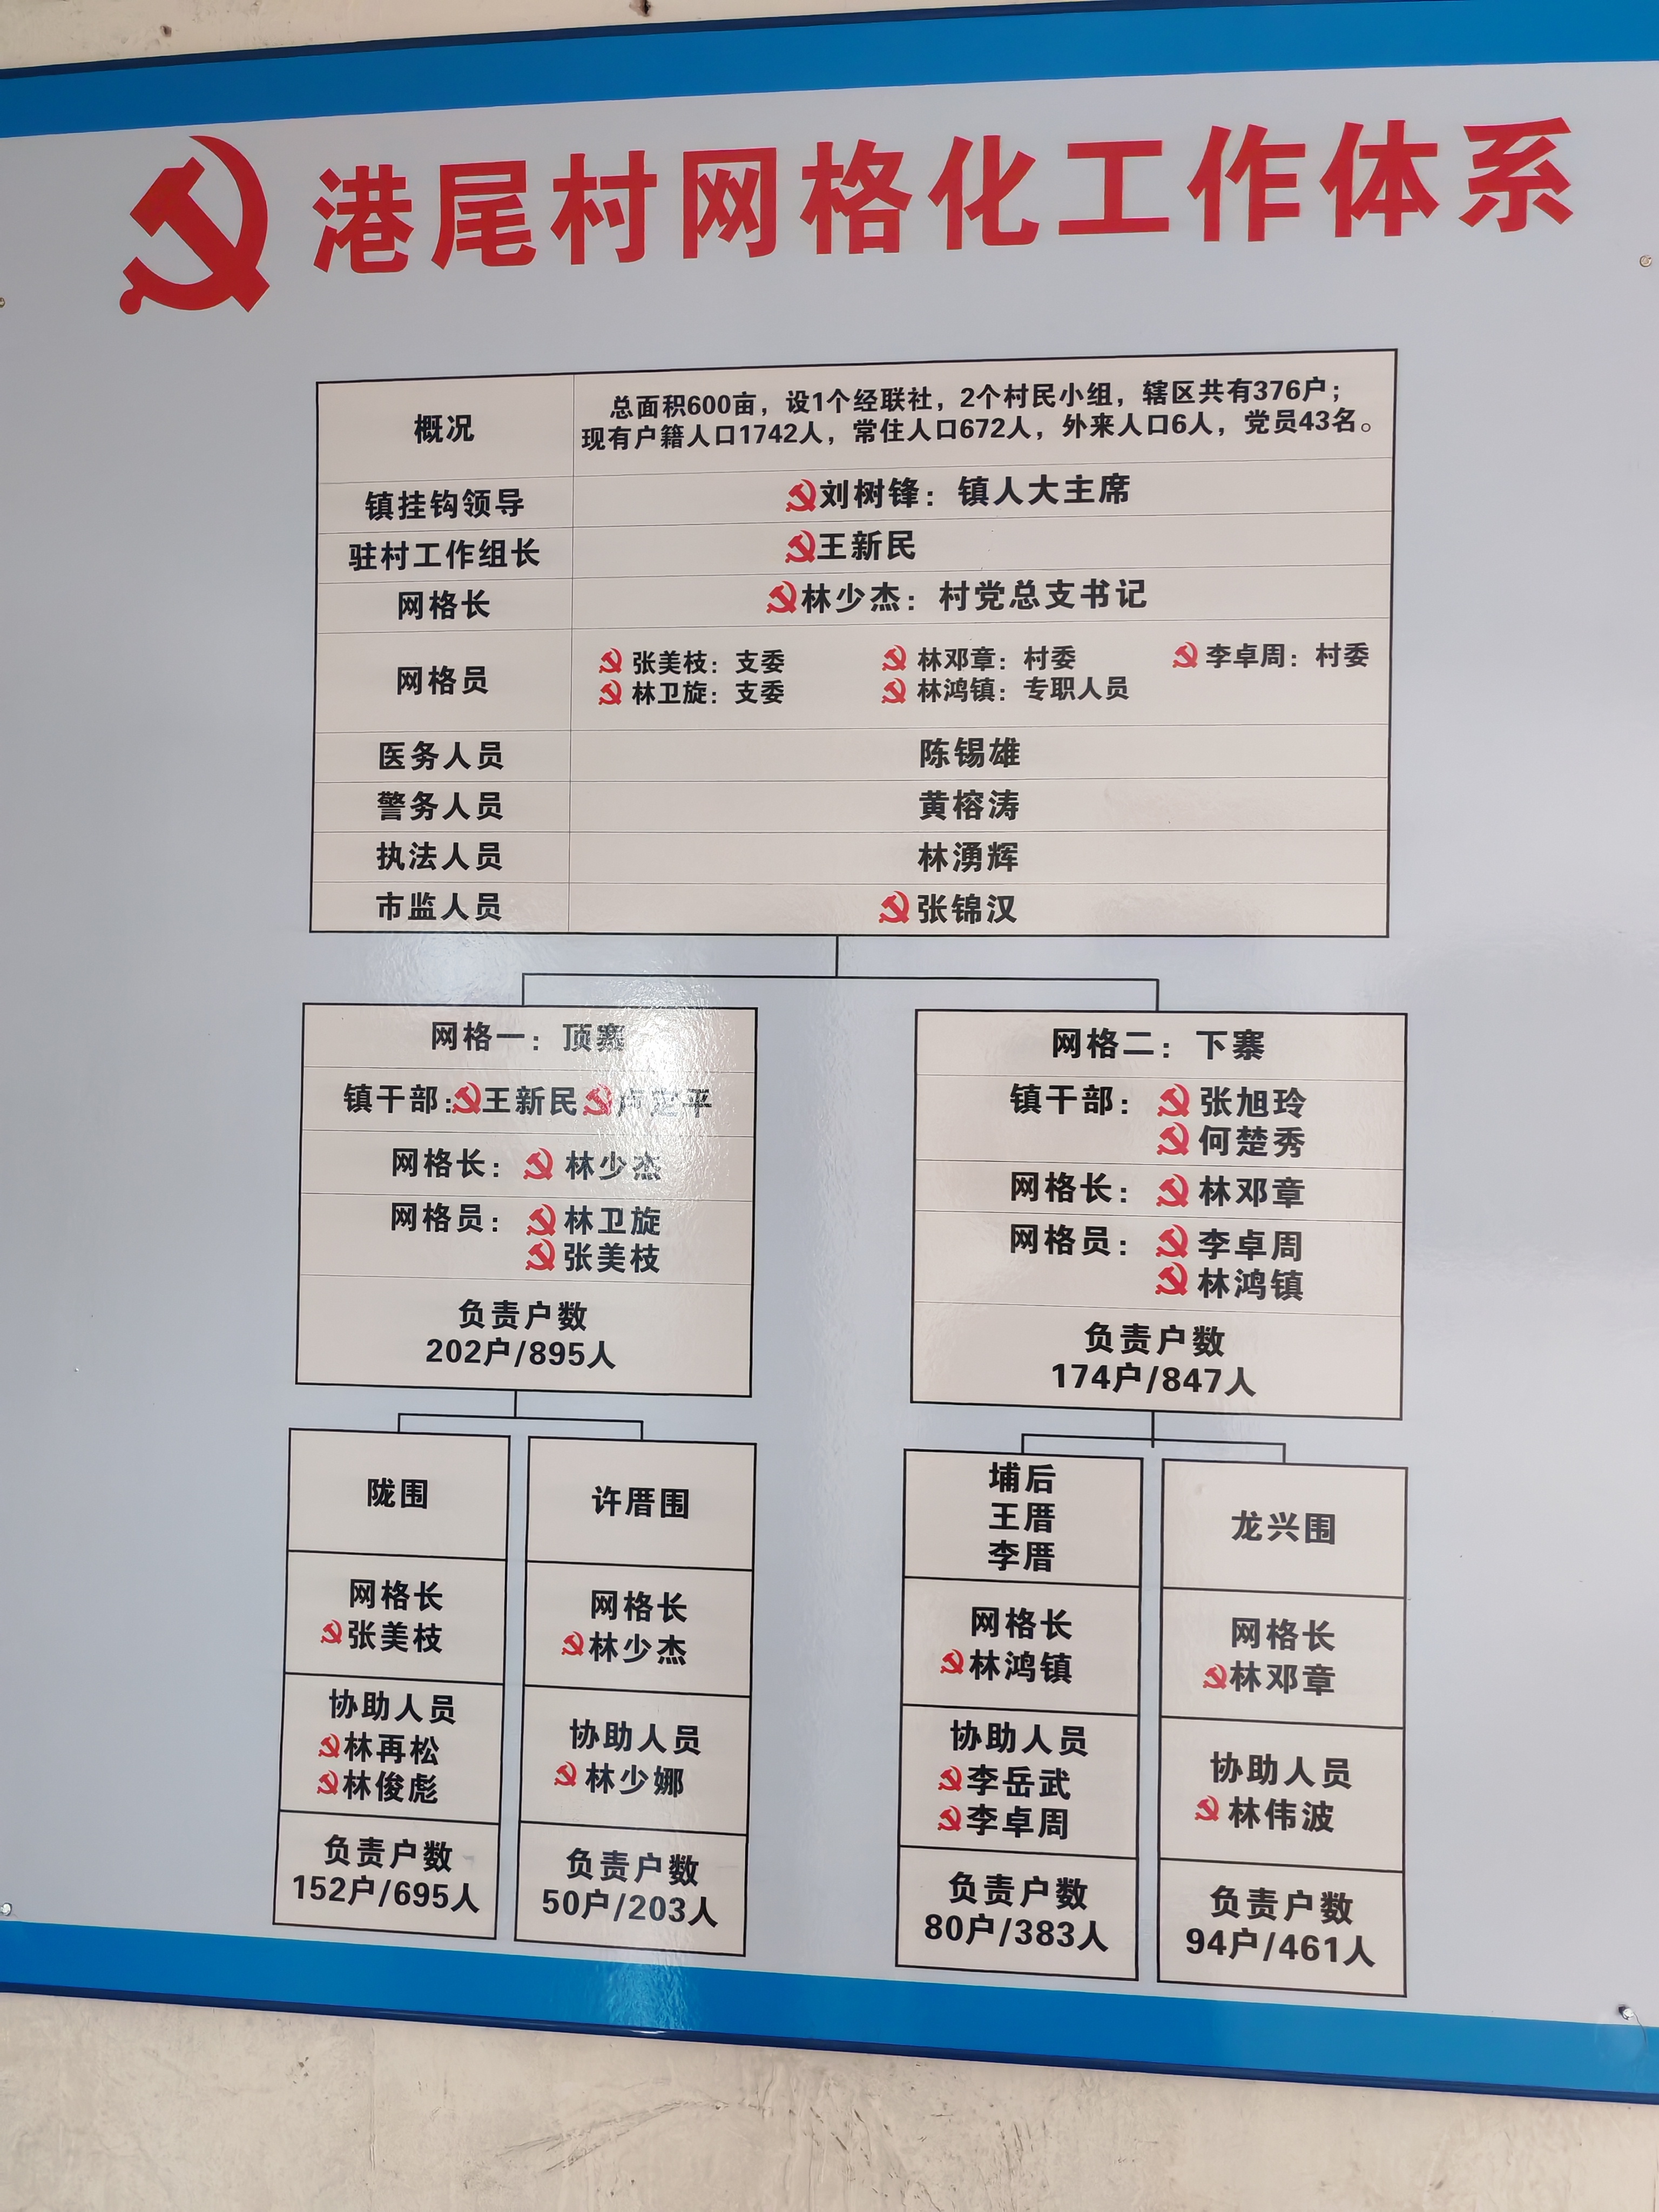 港尾村网格化工作体系
概况
总面积600亩，设1个经联社，2个村民小组，辖区共有376户；
现有户籍人口1742人，常住人口672人，外来人口6人，党员43名。
镇挂钩领导
刘树锋：镇人大主席
驻村工作组长
王新民
网格长
林少杰：村党总支书记
网格员
张美枝：支委 林邓章：村委 李卓周：村委
林卫旋：支委 林鸿镇：专职人员
医务人员
陈锡雄
警务人员
黄榕涛
执法人员
林湧辉
市监人员
张锦汉
网格一：顶寨
镇干部:王新民 卢定平
网格长：林少杰
网格员：林卫旋
张美枝
负责户数
202户/895人
网格二：下寨
镇干部：张旭玲
何楚秀
网格长：林邓章
网格员：李卓周
林鸿镇
负责户数
174户/847人
陇围
网格长
张美枝
协助人员
林再松
林俊彪
负责户数
152户/695人
许厝围
网格长
林少杰
协助人员
林少娜
负责户数
50户/203人
埔后
王厝
李厝
网格长
林鸿镇
协助人员
李岳武
李卓周
负责户数
80户/383人
龙兴围
网格长
林邓章
协助人员
林伟波
负责户数
94户/461人